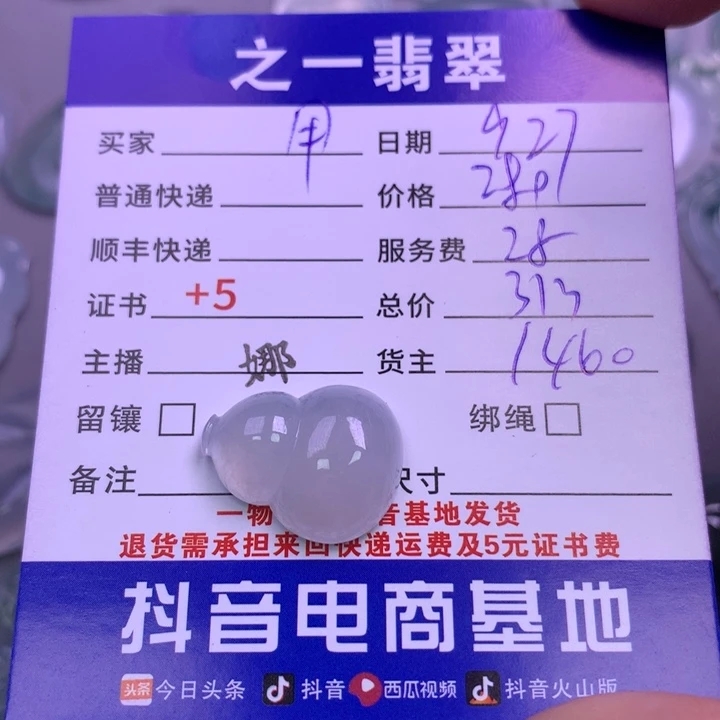 之一翡翠
买家 用 日期 927
普通快递 价格 280
顺丰快递 服务费 28
证书 +5 总价 313
主播 娜 货主 1460
留镶 绑绳
备注 尺寸
一物 音基地发货
退货需承担来回快递运费及5元证书费
抖音电商基地
头条 今日头条 抖音 西瓜视频 抖音火山版